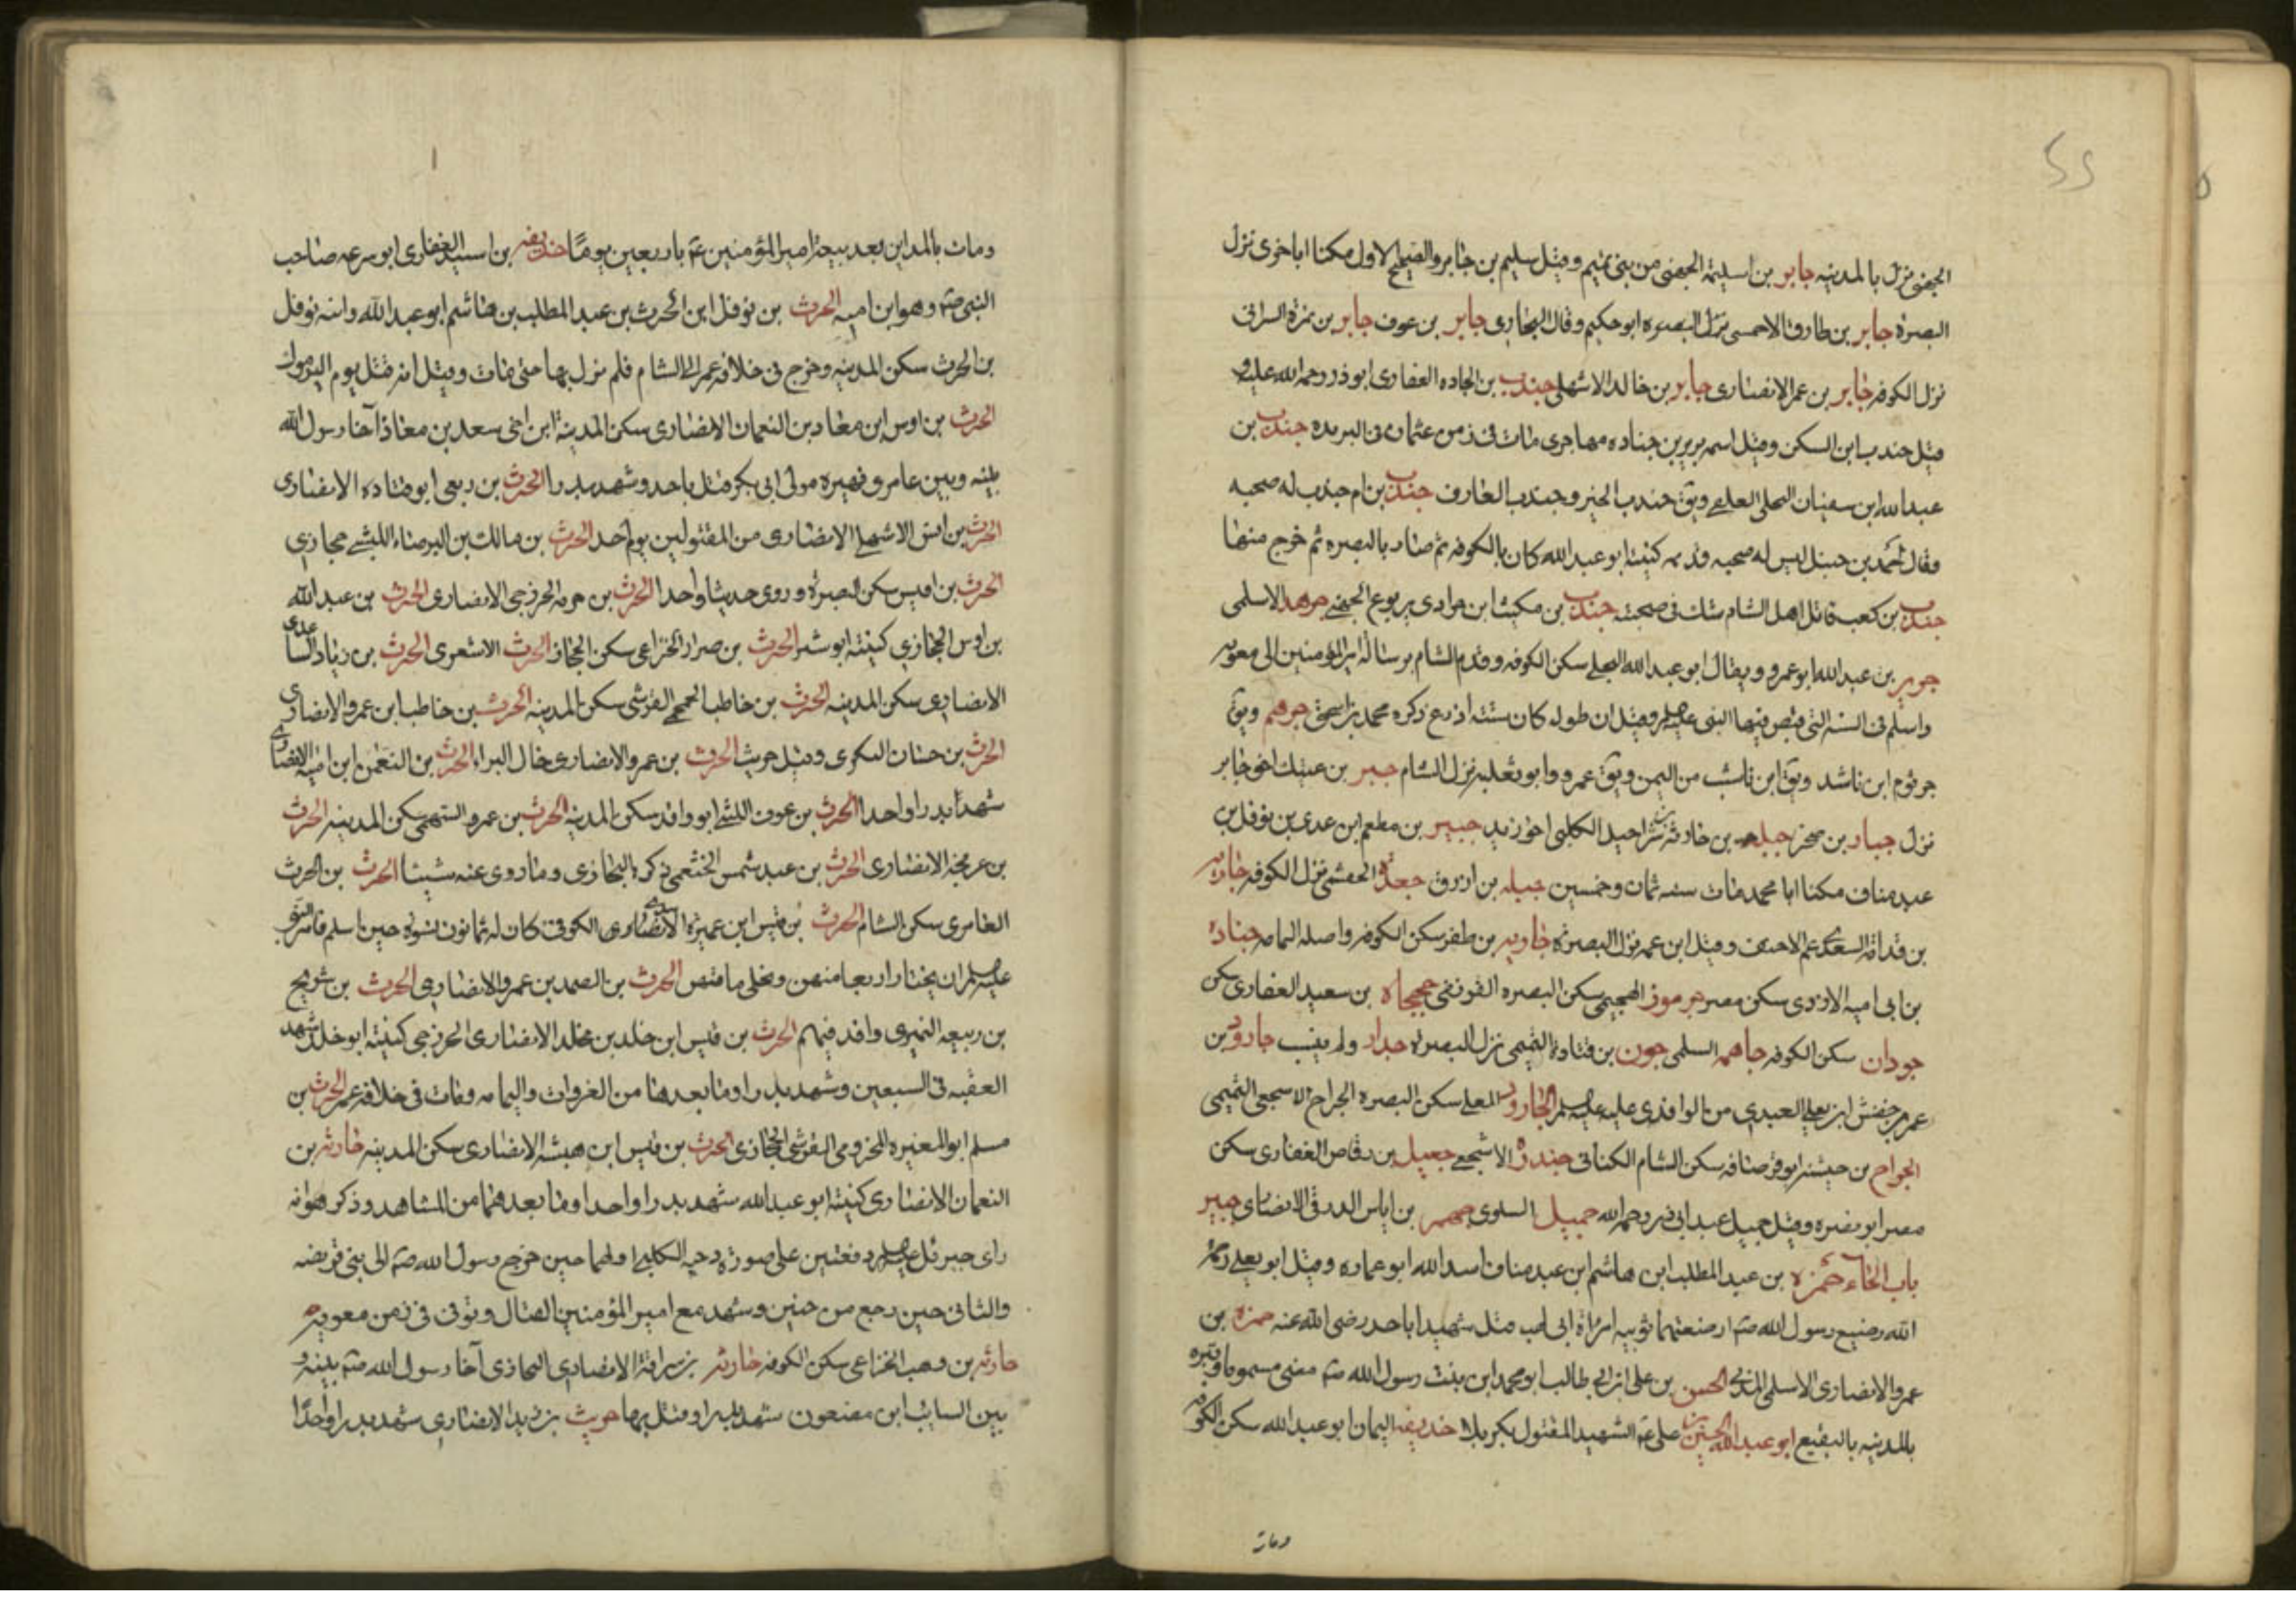 الجهنى نزل بالمدينه جابر بن اسليمة الجهنى من بنى تميم وقيل سليم بن جابر والصحيح الاول مكنا اباخرى نزل
البصرة جابر بن طارق الاحمسى نزل البصره ابو حكيم وقال البخارى جابر بن عوف جابر بن نمرة السرانى
نزل الكوفه جابر بن عمر الانصارى جابر بن خالد الاشهلى جندب بن الجاده الغفارى ابوذر رحمه الله عليه و
قيل جندب ابن السكن وقيل اسمه برير بن جناده مهاجرى مات فى زمن عثمان فى البريده جندب بن
عبد الله ابن سفيان البجلى العلمى ويق جندب الخير وجندب الفارق جندب بن ام جندب له صحبه
وقال احمد بن حنبل ليس له صحبه قديمه كنيته ابو عبد الله كان بالكوفه ثم صار بالبصره ثم خرج منها
جندب بن كعب قاتل اهل الشام شك فى صحبته جندب بن مكيث ابن جرادى يربوع الجهنى جرهد الاسلمى
جرير بن عبد الله ابو عمرو ويقال ابو عبد الله البجلى سكن الكوفه وقدم الشام برسالة امير المؤمنين الى معويه
واسلم فى السنه التى قبض فيها النبى عليه السلم وقيل ان طوله كان ستة اذرع ذكره محمد بن اسحق جرهم ويق
جرثوم ابن ناشد ويق ابن ناشب من اليمن ويق عمرو وابو ثعلبه نزل الشام جبر بن عتيك اخو جابر
نزل جبار بن صخر جبله بن حارثه بن شراحيل الكلبى اخو زيد جبير بن مطعم ابن عدى بن نوفل بن
عبد مناف مكنا ابا محمد مات سنه ثمان وخمسين جبله بن ازرق جعدة الجشمى نزل الكوفه جاريه
بن قدامة السعدى عم الاحنف وقيل ابن عمه نزل البصره جاريه بن ظفر سكن الكوفه واصله اليمامه جناده
بن ابى اميه الازدى سكن مصر جرموز الهجيمى سكن البصره القريعى جهجاه بن سعيد الغفارى سكن
جودان سكن الكوفه جاهمه السلمى جون بن قتادة التميمى نزل البصره جدار ولم ينسب جارود بن
عمرو بن حنش ابن يعلى العبدى من الوافدى عليه عليه السلم الجارود المعلى سكن البصره الجراح الاشجعى التميمى
الجراح بن حيشنه ابو قرصافه سكن الشام الكنانى جندرة الاشجعى جعيل بن رقاص الغفارى سكن
مصر ابو بصره وقيل جميل عبد ابى ذر رحمه الله جميل السلوى جهم بن اياس الدرقى الانصارى جبير
باب الحاء حمزه بن عبد المطلب ابن هاشم ابن عبد مناف اسد الله ابو عماره وقيل ابو يعلى رحمه
الله رضيع رسول الله صم ارضعتهما ثويبه امراة ابى لهب قتل شهيدا باحد رضى الله عنه حمزه بن
عمرو الانصارى الاسلمى المدنى الحسن بن على ابن ابى طالب ابو محمد ابن بنت رسول الله صم مضى مسموما وقبره
بالمدينه بالبقيع ابو عبد الله الحسين بن على عم الشهيد المقتول بكربلا حذيفه اليمان ابو عبد الله سكن الكوفه
ومات
ومات بالمداين بعد بيعة امير المؤمنين عم باربعين يوما حذيفه بن اسيد الغفارى ابو سرعه صاحب
النبى صم وهو ابن اميه الحرث بن نوفل ابن الحرث بن عبد المطلب بن هاشم ابو عبد الله وابنه نوفل
بن الحرث سكن المدينه وخرج فى خلافه عمر الى الشام فلم نزل بها حتى مات وقيل انه قتل يوم اليرموك
الحرث بن اوس ابن معاد بن النعمان الانصارى سكن المدينة ابن اخى سعد بن معاذ آخا رسول الله
بينه وبين عامر و فهيره مولى ابى بكر قتل باحد وشهد بدرا الحرث بن ربعى ابو قتاده الانصارى
الحرث بن انس الاشهلى الانصارى من المقتولين يوم احد الحرث بن مالك بن البرصاء الليثى حجازى
الحرث بن اقيس سكن البصرة وروى حديثا واحدا الحرث بن خزمه الخزرجى الانصارى الحرث بن عبد الله
بن اوس الحجازى كنيته ابو شر الحرث بن ضرار الخزاعى سكن الحجاز الحرث الاشعرى الحرث بن زياد الساعدى
الانصارى سكن المدينه الحرث بن خاطب الجمحى القرشى سكن المدينه الحرث بن خاطب ابن عمرو الانصارى
الحرث بن حسان البكرى وقيل حريث الحرث بن عمرو الانصارى خال البراء الحرث بن النعمن ابن اميه الانصارى
شهدا بدرا واحدا الحرث بن عوف الليثى ابو واقد سكن المدينه الحرث بن عمرو السهمى سكن المدينه الحرث
بن عرفجه الانصارى الحرث بن عبد شمس الخثعمى ذكره البخارى وما روى عنه شيئا الحرث بن الحرث
العامرى سكن الشام الحرث بن قيس ابن عميرة الاسدى الكوفى كان له ثمانون نسوة حين اسلم فامر النبى
عليه السلم ان يختار اربعا منهن ويخلى ما قبض الحرث بن الصمد بن عمرو الانصارى الحرث بن شريح
بن ربيعه النميرى وافد فيهم الحرث بن قيس ابن خلد بن مخلد الانصارى الخزرجى كنيته ابو خلد شهد
العقبه فى السبعين وشهد بدرا وما بعدها من الغزوات واليمامه ومات فى خلافه عمر الحرث بن
مسلم ابو المغيره المخزومى القرشى الحجازى الحرث بن قيس ابن هيشه الانصارى سكن المدينه حارثه بن
النعمان الانصارى كنيته ابو عبد الله شهد بدرا واحدا وما بعدهما من المشاهد وذكر هو انه
راى جبرئل عليه السلم دفعتين على صورة دحيه الكلبى اولهما حين خرج رسول الله صم الى بنى قريضه
والثانى حين رجع من حنين وشهد مع امير المؤمنين القتال وتوفى فى زمن معويه
حارثه بن وهب الخزاعى سكن الكوفه حارثه بن سراقة الانصارى النجارى آخا رسول الله صم بينه و
بين السايب ابن مضعون شهد بدرا وقتل بها حريث بن زيد الانصارى شهد بدرا واحدا